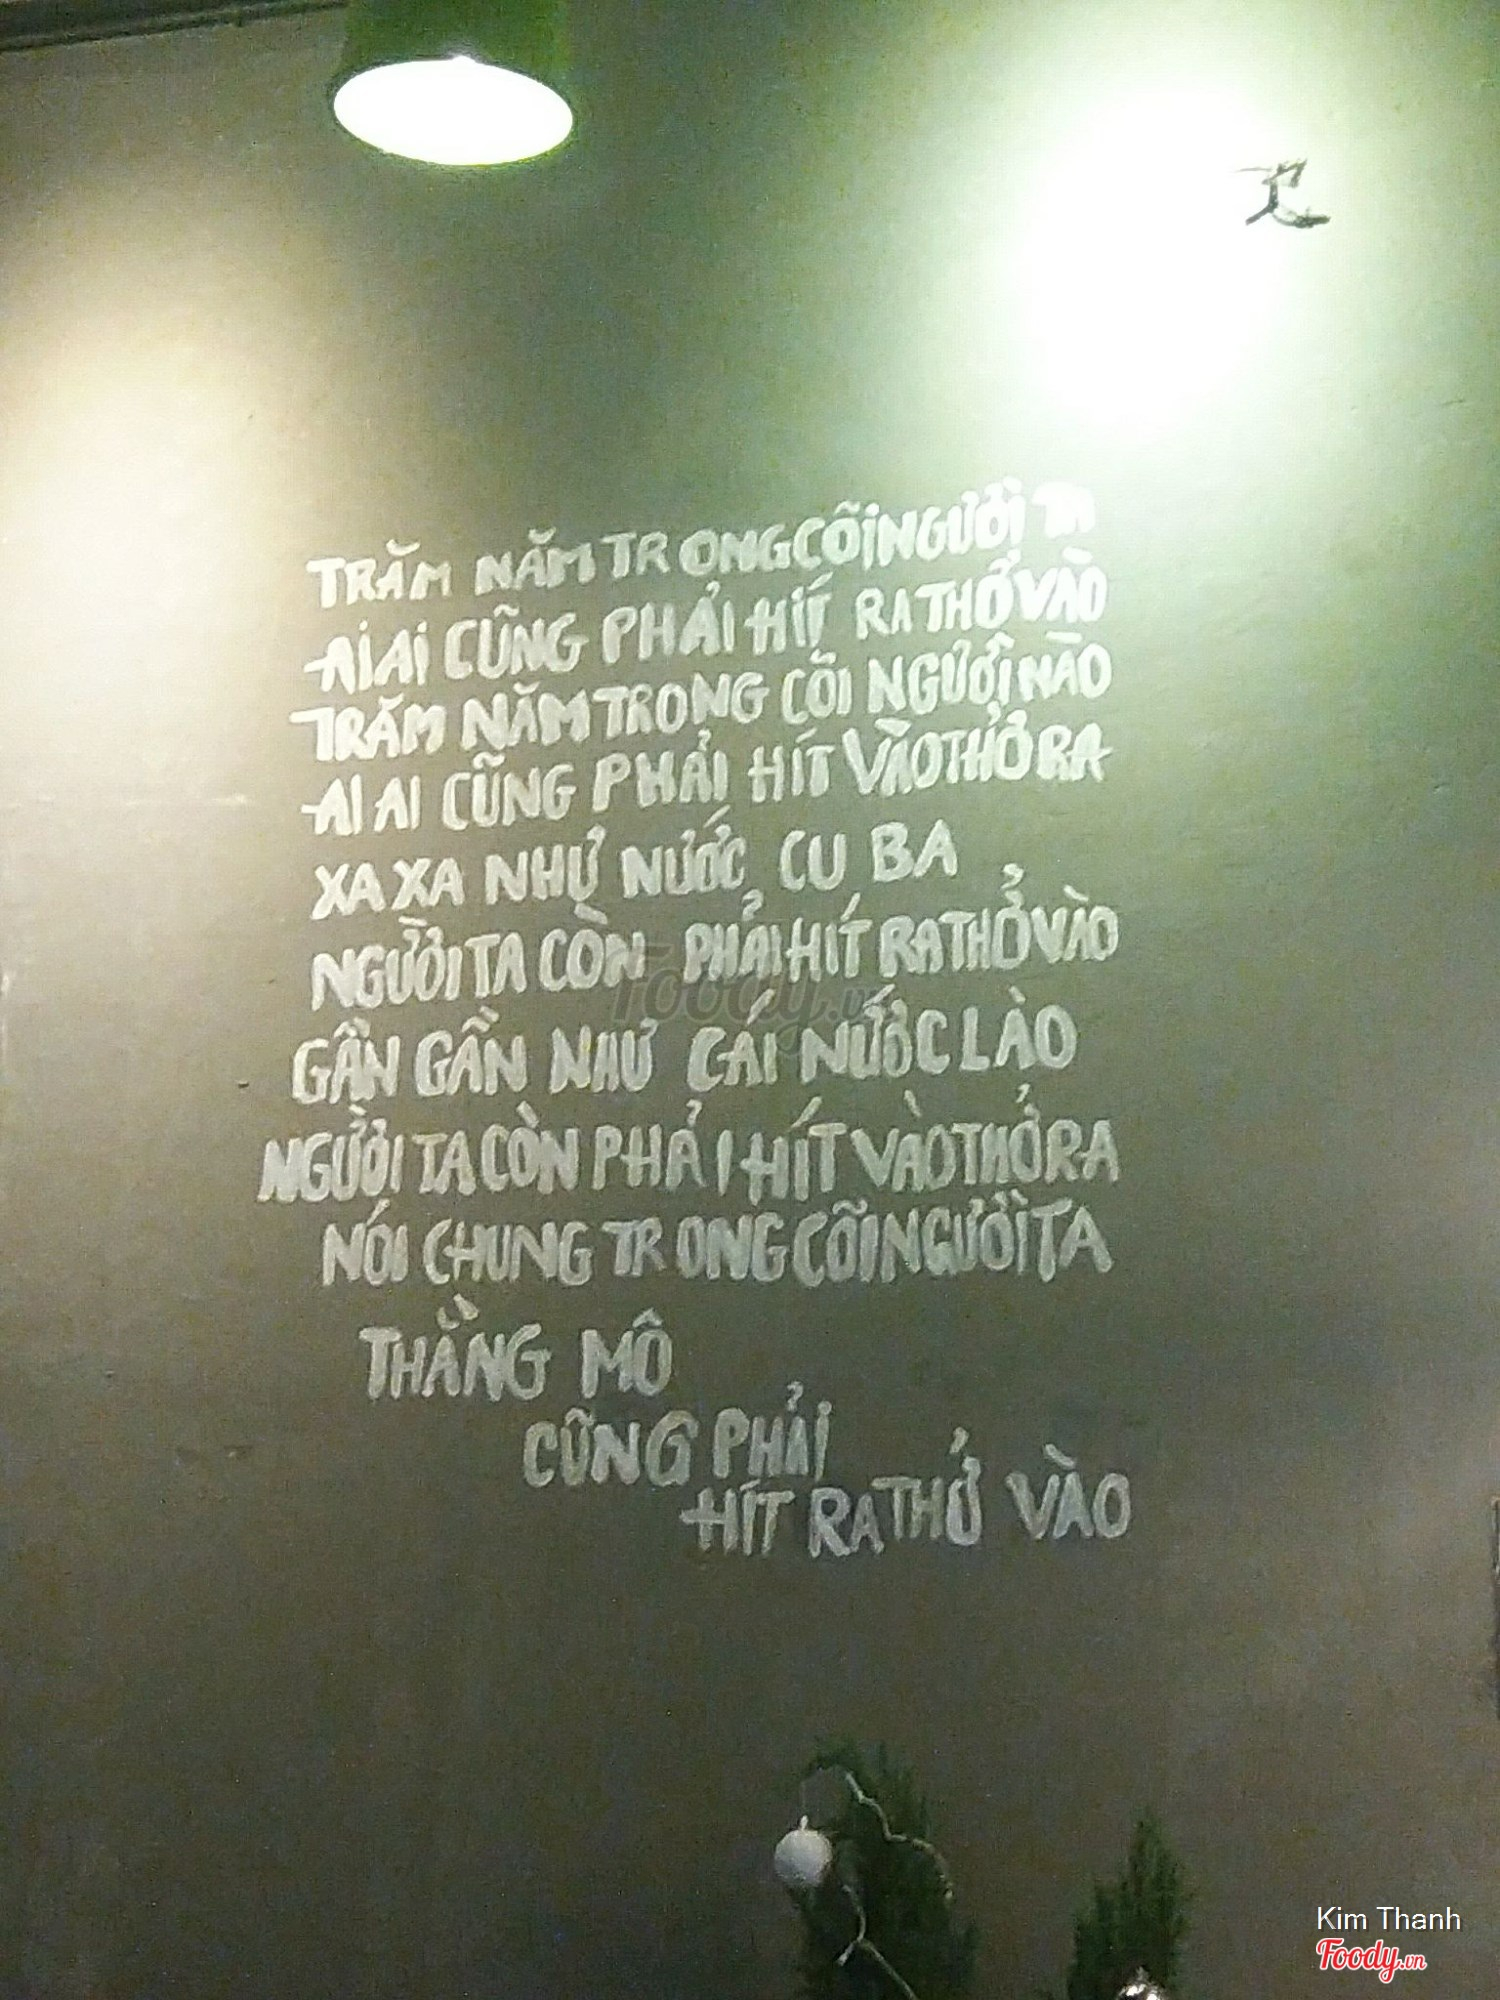 TRĂM NĂM TRONG CÕI NGƯỜI TA
AI AI CŨNG PHẢI HÍT RA THỞ VÀO
TRĂM NĂM TRONG CÕI NGƯỜI NÀO
AI AI CŨNG PHẢI HÍT VÀO THỞ RA
XA XA NHƯ NƯỚC CU BA
NGƯỜI TA CÒN PHẢI HÍT RA THỞ VÀO
GẦN GẦN NHƯ CÁI NƯỚC LÀO
NGƯỜI TA CÒN PHẢI HÍT VÀO THỞ RA
NÓI CHUNG TRONG CÕI NGƯỜI TA
THẰNG MÔ
CŨNG PHẢI
HÍT RA THỞ VÀO
Foody.vn
Kim Thanh
Foody.vn